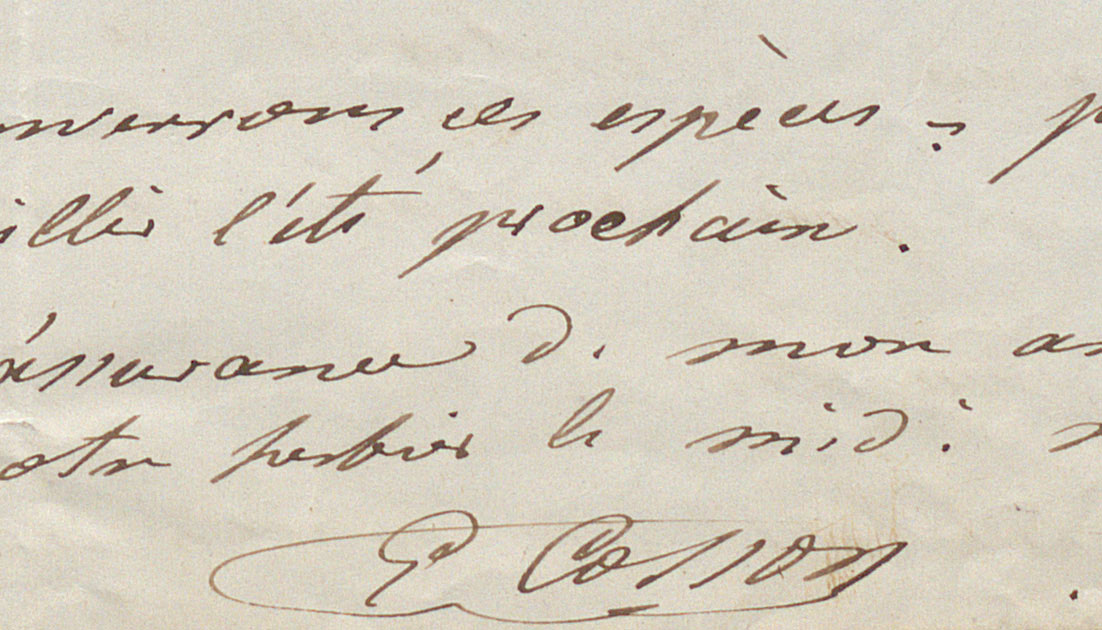 nverrons ces espèces - p
illir l'été prochain.
assurance de mon a
otre herbier le midi
E Cosson